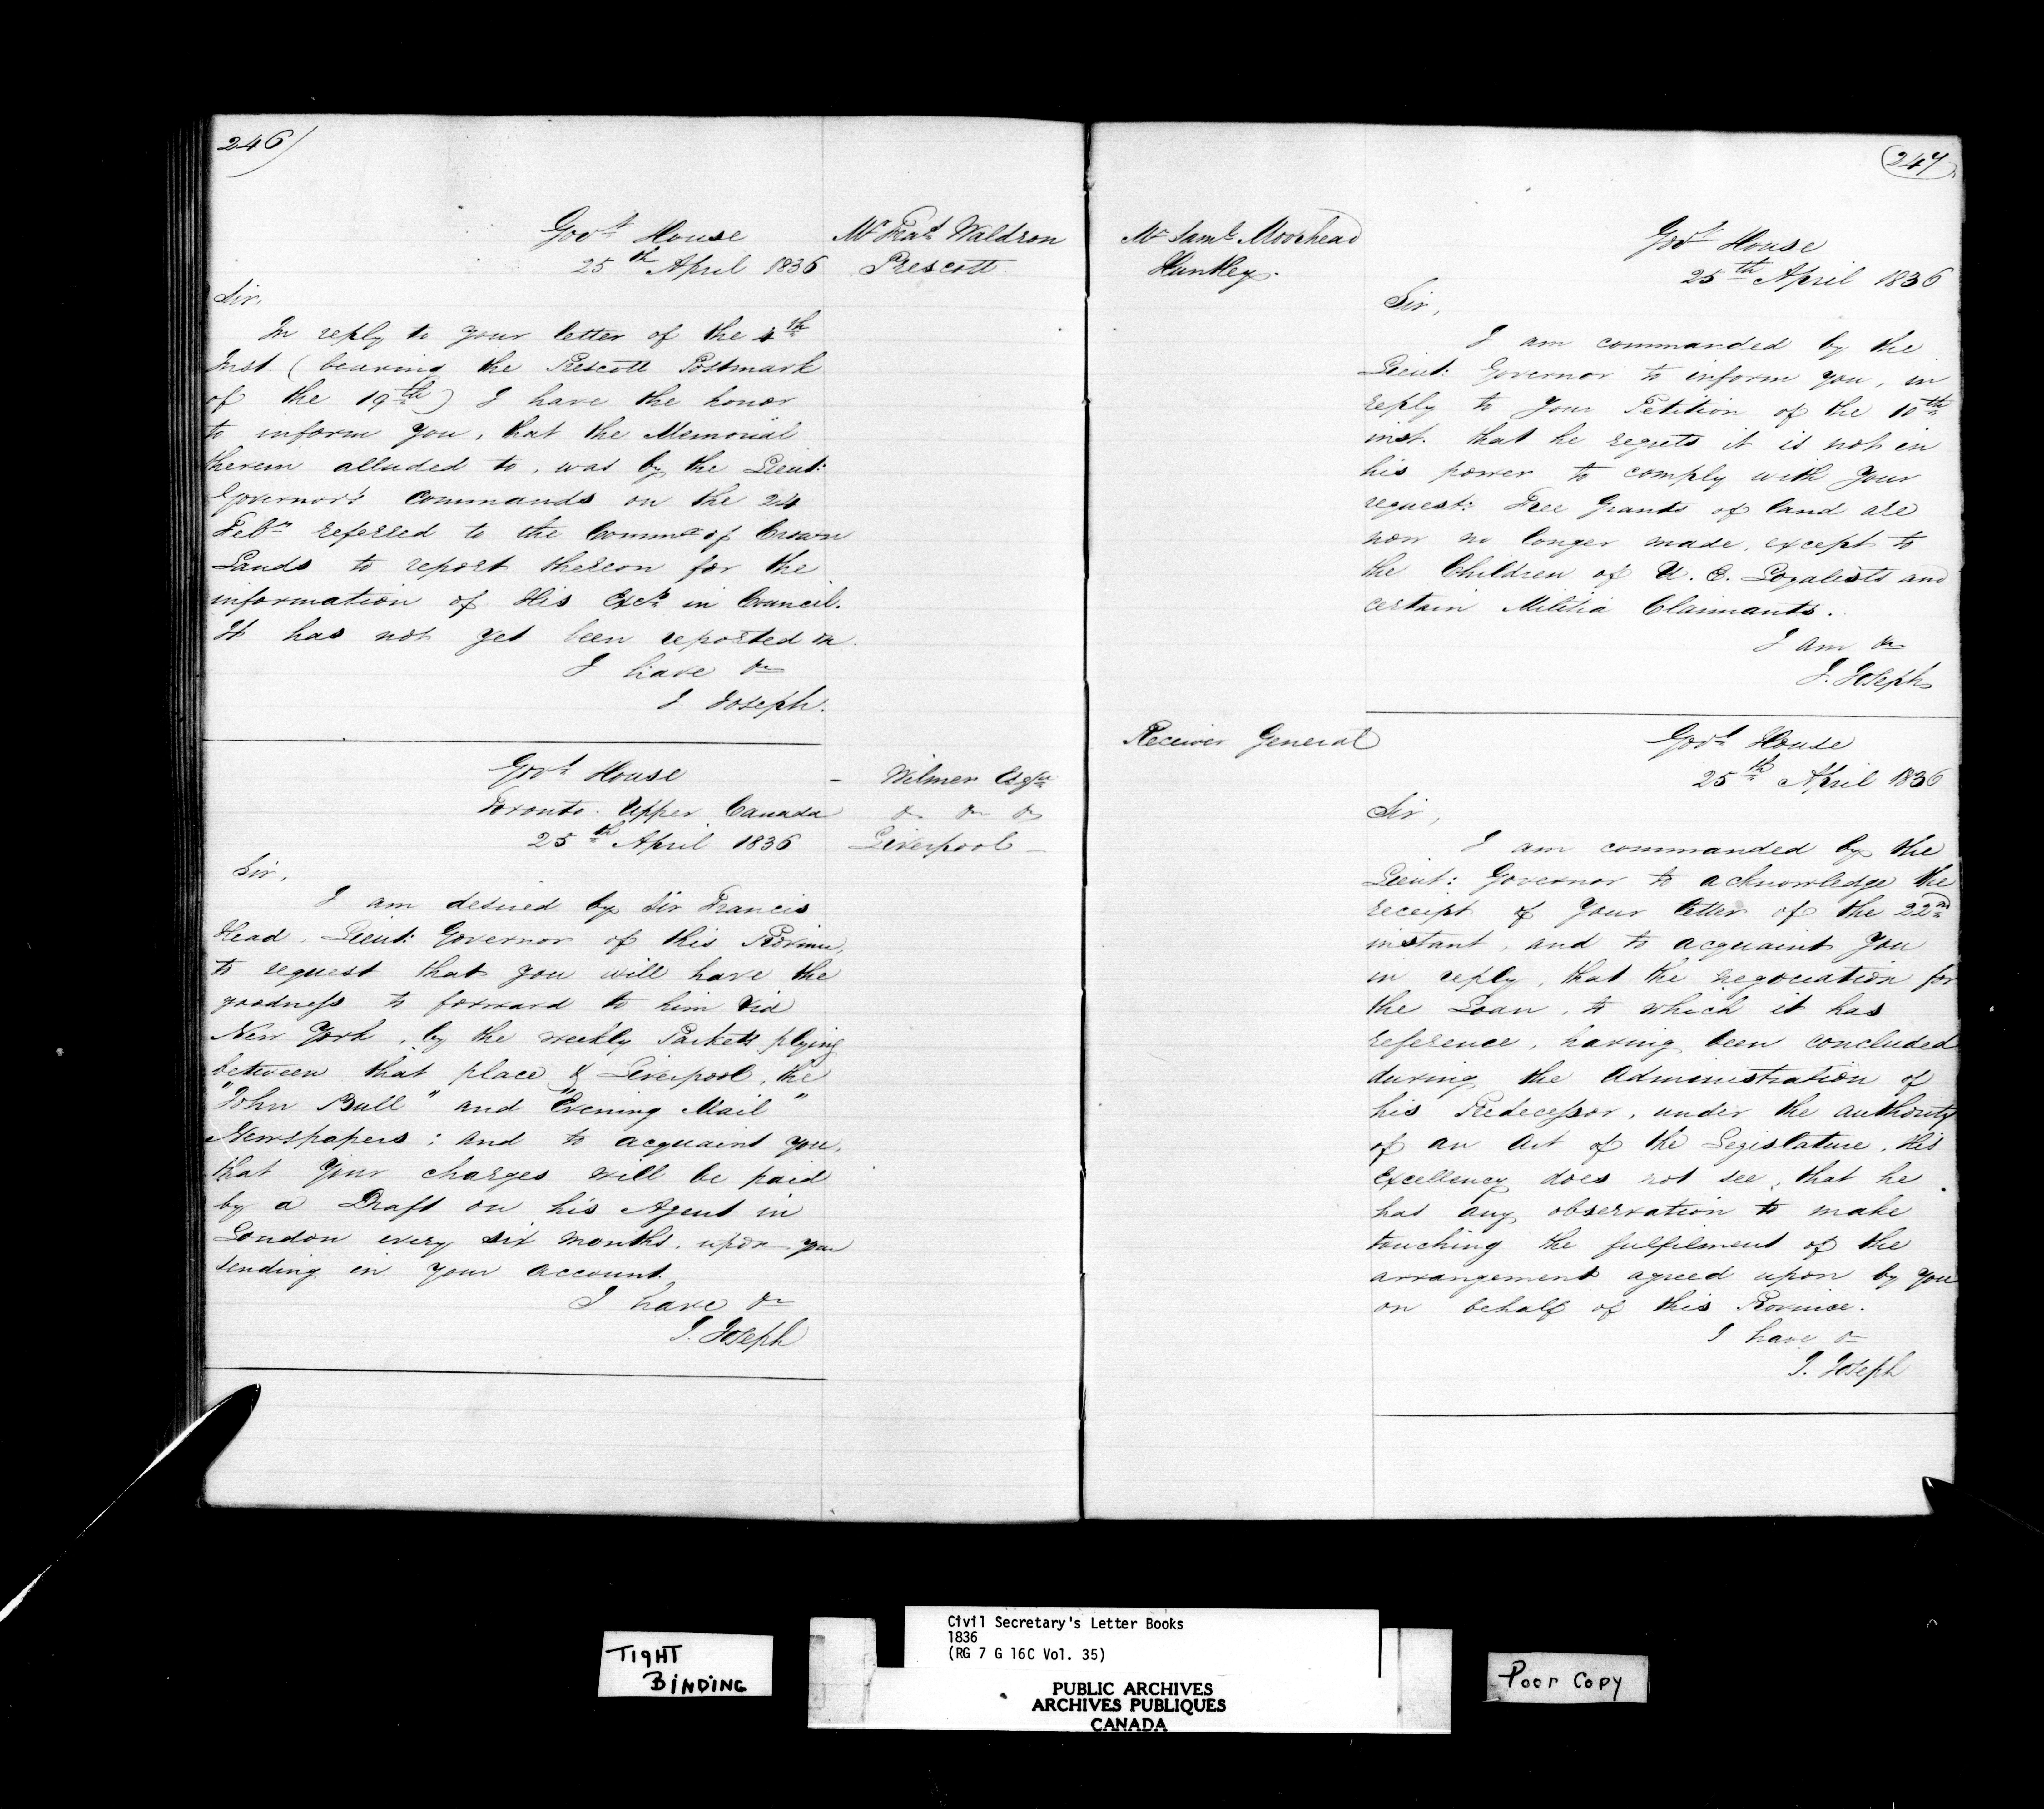 246)
Govt. House
25th April 1836
Mr. Fras. Waldron
Prescott
Sir,
In reply to your letter of the 4th
Inst (bearing the Prescott Postmark
of the 19th) I have the honor
to inform you, that the Memorial
therein alluded to, was by the Lieut:
Governor's Commands on the 24
Feby. referred to the Commr. of Crown
Lands to report thereon for the
information of His Excy. in Council.
It has not yet been reported on.
I have &c
J. Joseph.
Govt. House
Toronto. Upper Canada
25th April 1836
- Wilmer Esqre
&c &c &c
Liverpool -
Sir,
I am desired by Sir Francis
Head, Lieut: Governor of this Province,
to request that you will have the
goodness to forward to him via
New York, by the weekly Packets plying
between that place & Liverpool, the
"John Bull" and "Evening Mail"
Newspapers; and to acquaint you,
that your charges will be paid
by a Draft on his Agent in
London every six months, upon you
sending in your account.
I have &c
J. Joseph
247
Mr. Saml. Moorhead
Huntley.
Govt. House
25th April 1836
Sir,
I am commanded by the
Lieut: Governor to inform you, in
reply to your Petition of the 10th
inst. that he regrets it is not in
his power to comply with your
request: Free Grants of land are
now no longer made, except to
the Children of U. E. Loyalists and
certain Militia Claimants.
I am &c
J. Joseph
Receiver General
Govt. House
25th April 1836
Sir,
I am commanded by the
Lieut: Governor to acknowledge the
receipt of your letter of the 22nd
instant, and to acquaint you
in reply, that the negociation for
the Loan, to which it has
reference, having been concluded
during the Administration of
his Predecessor, under the authority
of an Act of the Legislature, His
Excellency does not see, that he
has any observation to make
touching the fulfilment of the
arrangement agreed upon by you
on behalf of this Province.
I have &c
J. Joseph
TIGHT
BINDING
Civil Secretary's Letter Books
1836
(RG 7 G 16C Vol. 35)
PUBLIC ARCHIVES
ARCHIVES PUBLIQUES
CANADA
Poor Copy